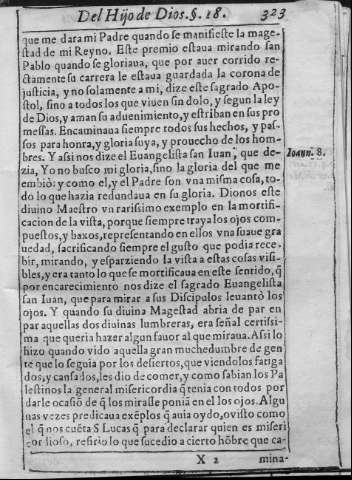 Del Hijo de Dios. §. 18. 323
que me dara mi Padre quando se manifieste la mage-
stad de mi Reyno. Este premio estaua mirando san
Pablo quando se gloriaua, que por auer corrido re-
ctamente su carrera le estaua guardada la corona de
justicia, y no solamente a mi, dize este sagrado Apo-
stol, sino a todos los que viuen sin dolo, y segun la ley
de Dios, y aman su aduenimiento, y estriban en sus pro
messas. Encaminaua siempre todos sus hechos, y pas-
sos para honra, y gloria suya, y prouecho de los hom-
bres. Y assi nos dize el Euangelista san Iuan, que de-
zia, Yo no busco mi gloria, sino la gloria del que me
embiò: y como el, y el Padre son vna misma cosa, to-
do lo que hazia redundaua en su gloria. Dionos este
diuino Maestro vn rarissimo exemplo en la mortifi-
cacion de la vista, porque siempre traya los ojos com-
puestos, y baxos, representando en ellos vna suaue gra
uedad, sacrificando siempre el gusto que podia rece-
bir, mirando, y esparziendo la vista a estas cosas visi-
bles, y era tanto lo que se mortificaua en este sentido, q̃
por encarecimiento nos dize el sagrado Euangelista
san Iuan, que para mirar a sus Discipulos leuantò los
ojos. Y quando su diuina Magestad abria de par en
par aquellas dos diuinas lumbreras, era señal certissi-
ma que queria hazer algun fauor al que miraua. Assi lo
hizo quando vido aquella gran muchedumbre de gen
te que lo seguia por los desiertos, que viendolos fatiga
dos, y cansados, les dio de comer, y como sabian los Pa
lestinos la general misericordia q̃ tenia con todos por
darle ocasiõ de q̃ los mirasse poniã en el los ojos. Algu
nas vezes predicaua exẽplos q̃ auia oydo, o visto como
el q̃ nos cuẽta S. Lucas q̃ para declarar quien es miseri
cordioso, refirio lo que sucedio a cierto hõbre que ca-
X 2 mina-
Ioann. 8.